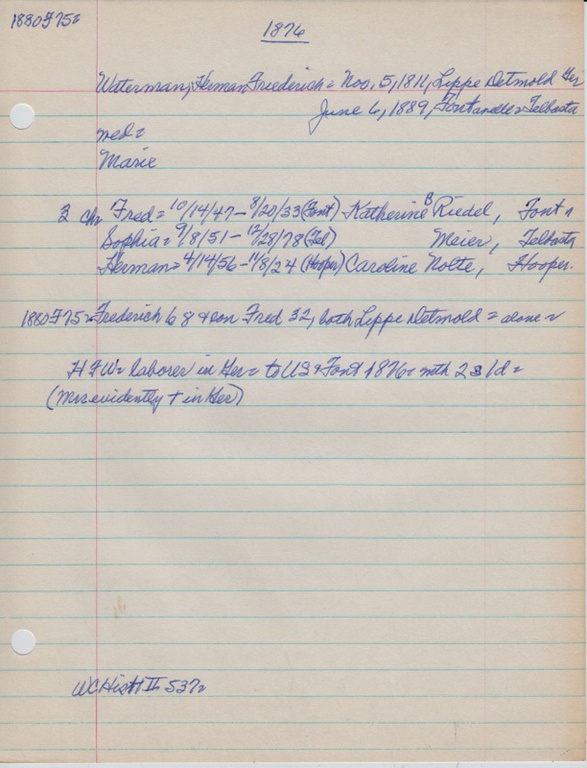 1880 F 75=
1876
Waterman, Herman Friederich = Nov. 5, 1811, Lippe Detmold Ger
June 6, 1889, Fontanelle = Telbasta
med =
Marie
3 chr Fred = 10/14/47 - 8/20/33 (Font) Katherine B Riedel, Font =
Sophia = 9/8/51 - 12/28/78 (Tel) Meier, Telbasta
Herman = 4/14/56 - 11/8/24 (Hooper) Caroline Nolte, Hooper.
1880 F 75 = Frederich 68 + son Fred 32, both Lippe Detmold = alone =
H F W = laborer in Ger = to US + Font 1876 = with 2s 1d =
(Mrs evidently + in Ger)
WC Hist II 537=